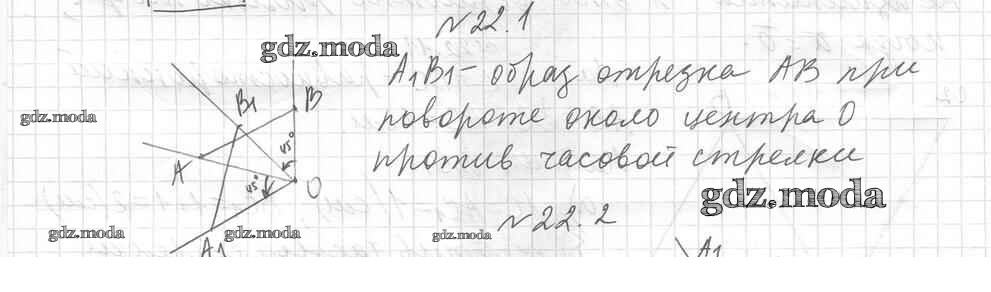 № 22.1
gdz.moda
A₁B₁ - образ отрезка AB при
повороте около центра O
против часовой стрелки
gdz.moda
B₁
B
45°
A
45°
O
A₁
gdz.moda
gdz.moda
gdz.moda
gdz.moda
№ 22.2
A₁